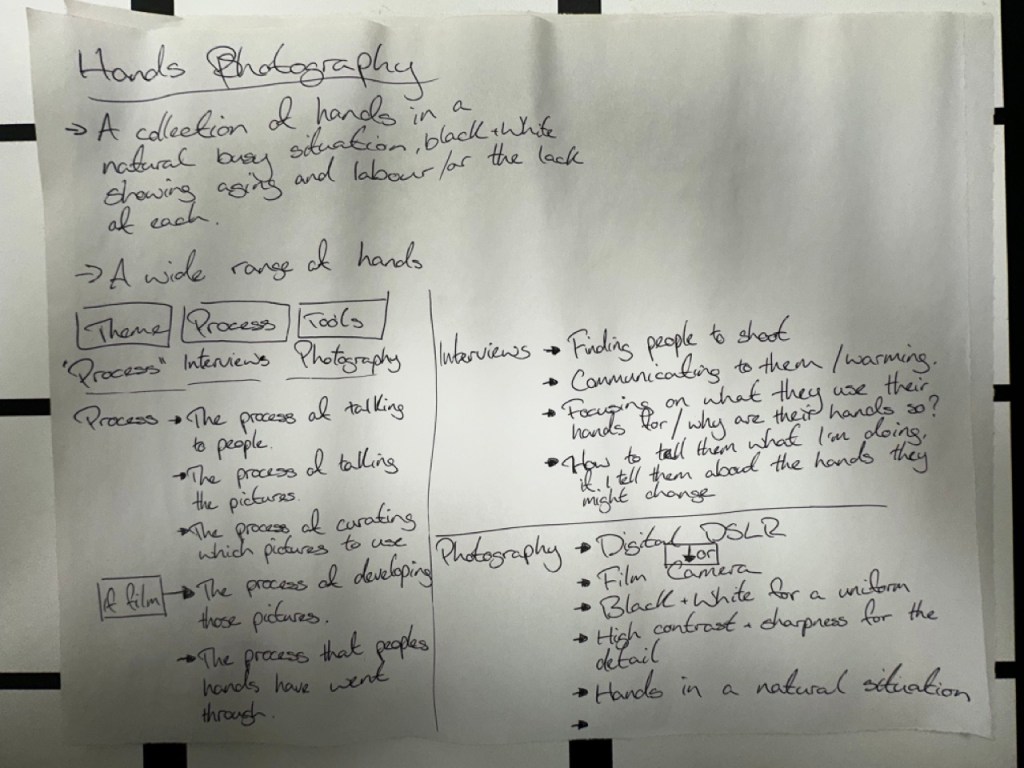 Hands Photography
→ A collection of hands in a
natural busy situation, black + white
showing aging and labour / or the lack
of each.
→ A wide range of hands
Theme Process Tools
"Process" Interviews Photography
Process → The process of talking
to people.
→ The process of talking
the pictures.
→ The process of curating
which pictures to use
If film → The process of developing
those pictures.
→ The process that peoples
hands have went
through.
Interviews → Finding people to shoot
→ Communicating to them / warming.
→ Focusing on what they use their
hands for / why are their hands so?
→ How to tell them what I'm doing.
if I tell them about the hands they
might change
Photography → Digital DSLR
↓ or
→ Film Camera
→ Black + White for a uniform
→ High contrast + sharpness for the
detail
→ Hands in a natural situation
→